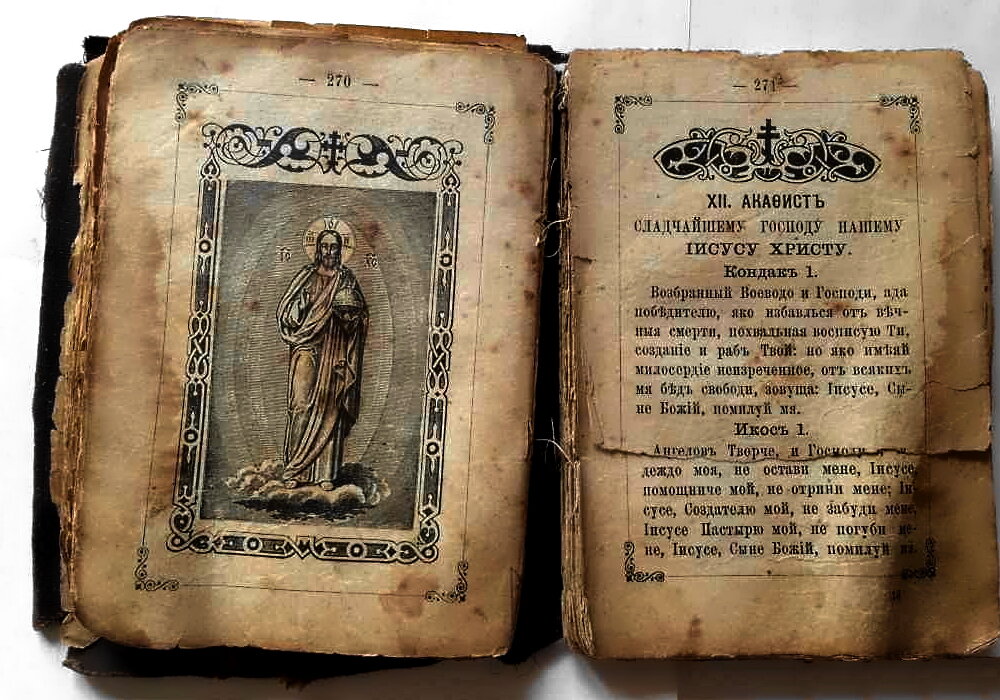 — 270 —
ІС ХС
— 271 —
XII. АКАѲИСТЪ
СЛАДЧАЙШЕМУ ГОСПОДУ НАШЕМУ
ІИСУСУ ХРИСТУ.
Кондакъ 1.
Возбранный Воеводо и Господи, ада
побѣдителю, яко избавлься отъ вѣч-
ныя смерти, похвальная восписую Ти,
созданіе и рабъ Твой: но яко имѣяй
милосердіе неизреченное, отъ всякихъ
мя бѣдъ свободи, зовуща: Іисусе, Сы-
не Божій, помилуй мя.
Икосъ 1.
Ангеловъ Творче, и Господи
деждо моя, не остави мене, Іисусе
помощниче мой, не отрини мене; Іи-
сусе, Создателю мой, не забуди мене,
Іисусе Пастырю мой, не погуби ме-
не, Іисусе, Сыне Божій, помилуй